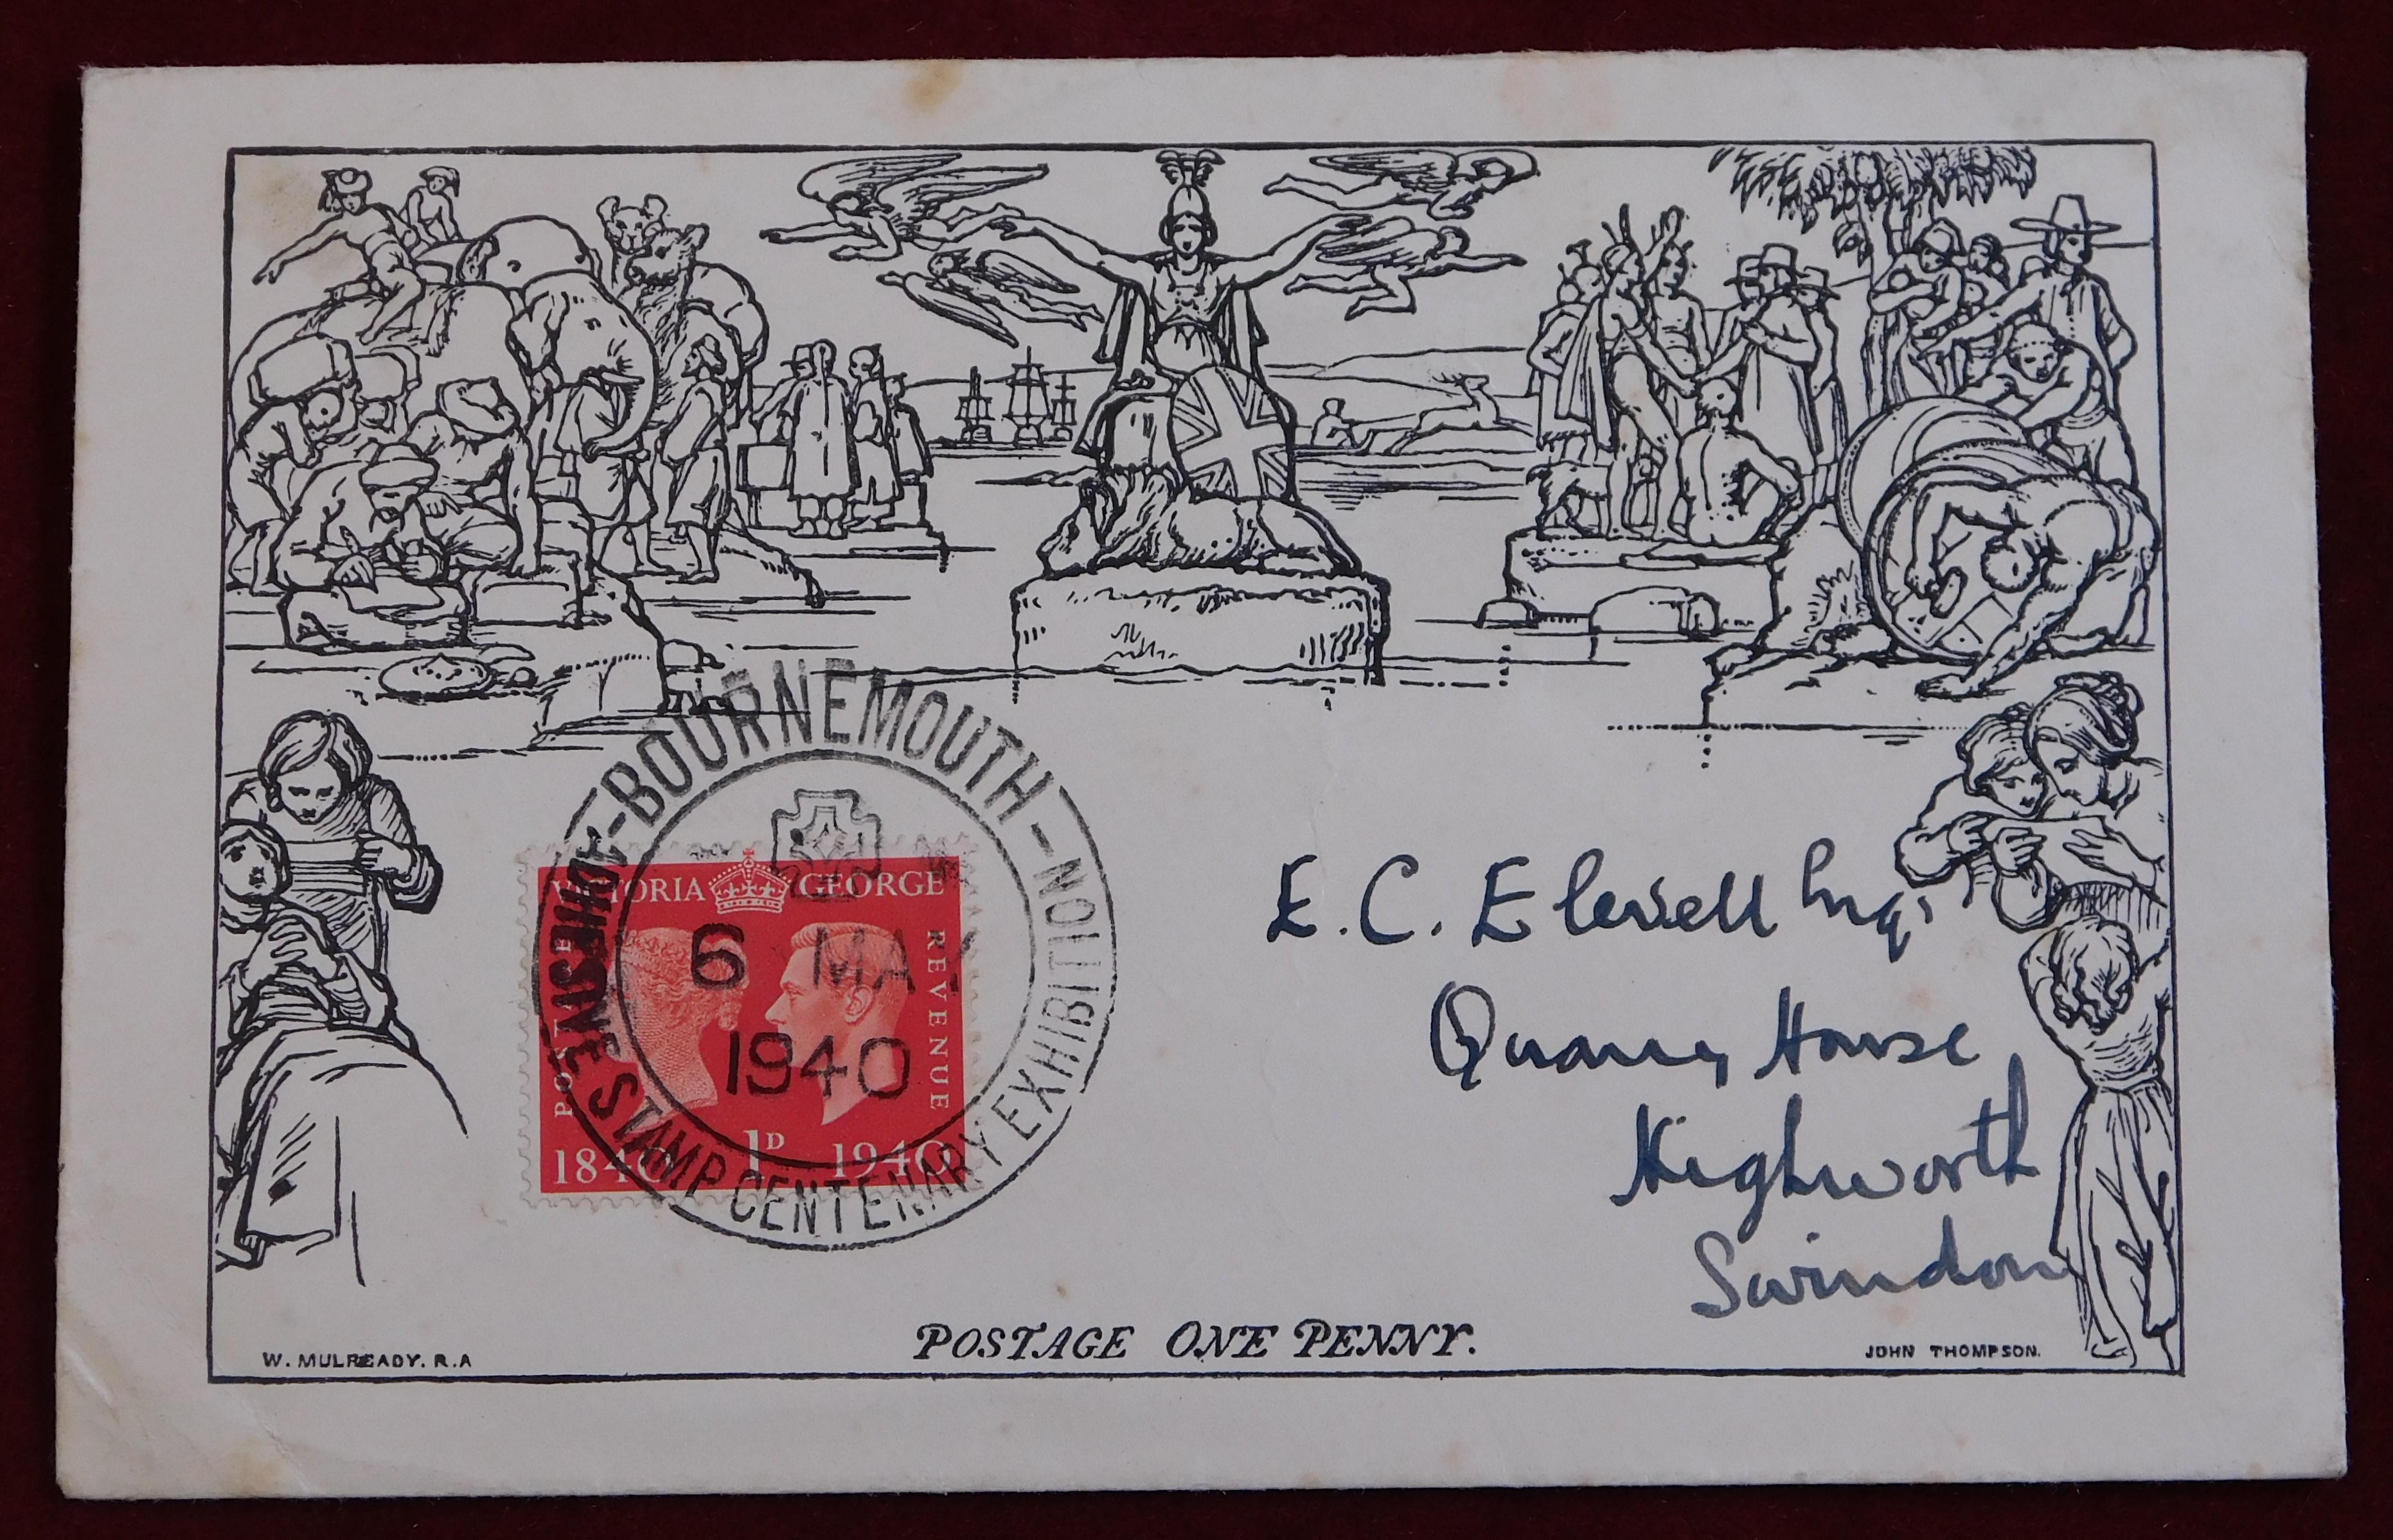 BOURNEMOUTH - PAVILION
ADHESIVE STAMP CENTENARY EXHIBITION
6 MAY
1940
VICTORIA GEORGE
POSTAGE
REVENUE
1840 1D 1940
E. C. Elwell Esq.
Quarry House
Highworth
Swindon
POSTAGE ONE PENNY.
W. MULREADY. R.A
JOHN THOMPSON.